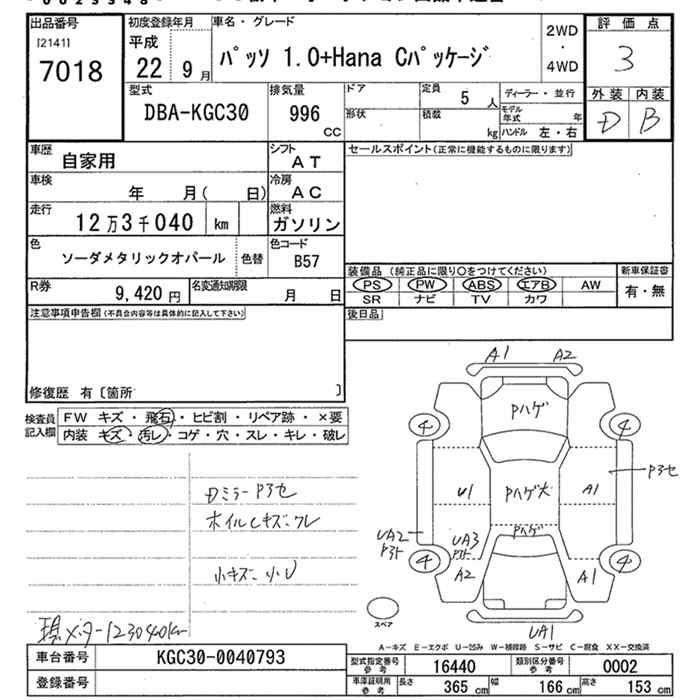 出品番号
[2141]
7018
初度登録年月
平成
22 9月
車名・グレード
パッソ 1.0+Hana Cパッケージ
2WD
・
4WD
評価点
3
外装 内装
D B
型式
DBA-KGC30
排気量
996
CC
ドア
定員
5 人
ディーラー・並行
形状
積載
kg
モデル年式 年
ハンドル 左・右
車歴
自家用
シフト
AT
セールスポイント(正常に機能するものに限ります)
車検
年 月( 日)
冷房
AC
走行
12万3千040 km
燃料
ガソリン
色
ソーダメタリックオパール
色替
色コード
B57
装備品(純正品に限り○をつけてください)
新車保証書
PS PW ABS エアB AW
有・無
SR ナビ TV カワ
R券
9,420円
名変通知期限
月 日
後日品
注意事項申告欄(不具合内容等は具体的に記入して下さい)
修復歴 有〔箇所 〕
検査員
記入欄
FW キズ・飛石・ヒビ割・リペア跡・×要
内装 キズ・汚レ・コゲ・穴・スレ・キレ・破レ
Dミラー Pヨセ
ホイルCキズ・クレ
小キズ・小U
現メーター123040km
A1 A2
Pハゲ
4 4
Pヨセ
U1 Pハゲ大 A1
UA2
UA3
Pハゲ
4 4
A2 A1
UA1
スペア
A-キズ E-エクボ U-凹み W-補修跡 S-サビ C-腐食 XX-交換済
車台番号
KGC30-0040793
型式指定番号
参考
16440
類別区分番号
参考
0002
登録番号
車庫証明用
参考
長さ
365 cm
幅
166 cm
高さ
153 cm